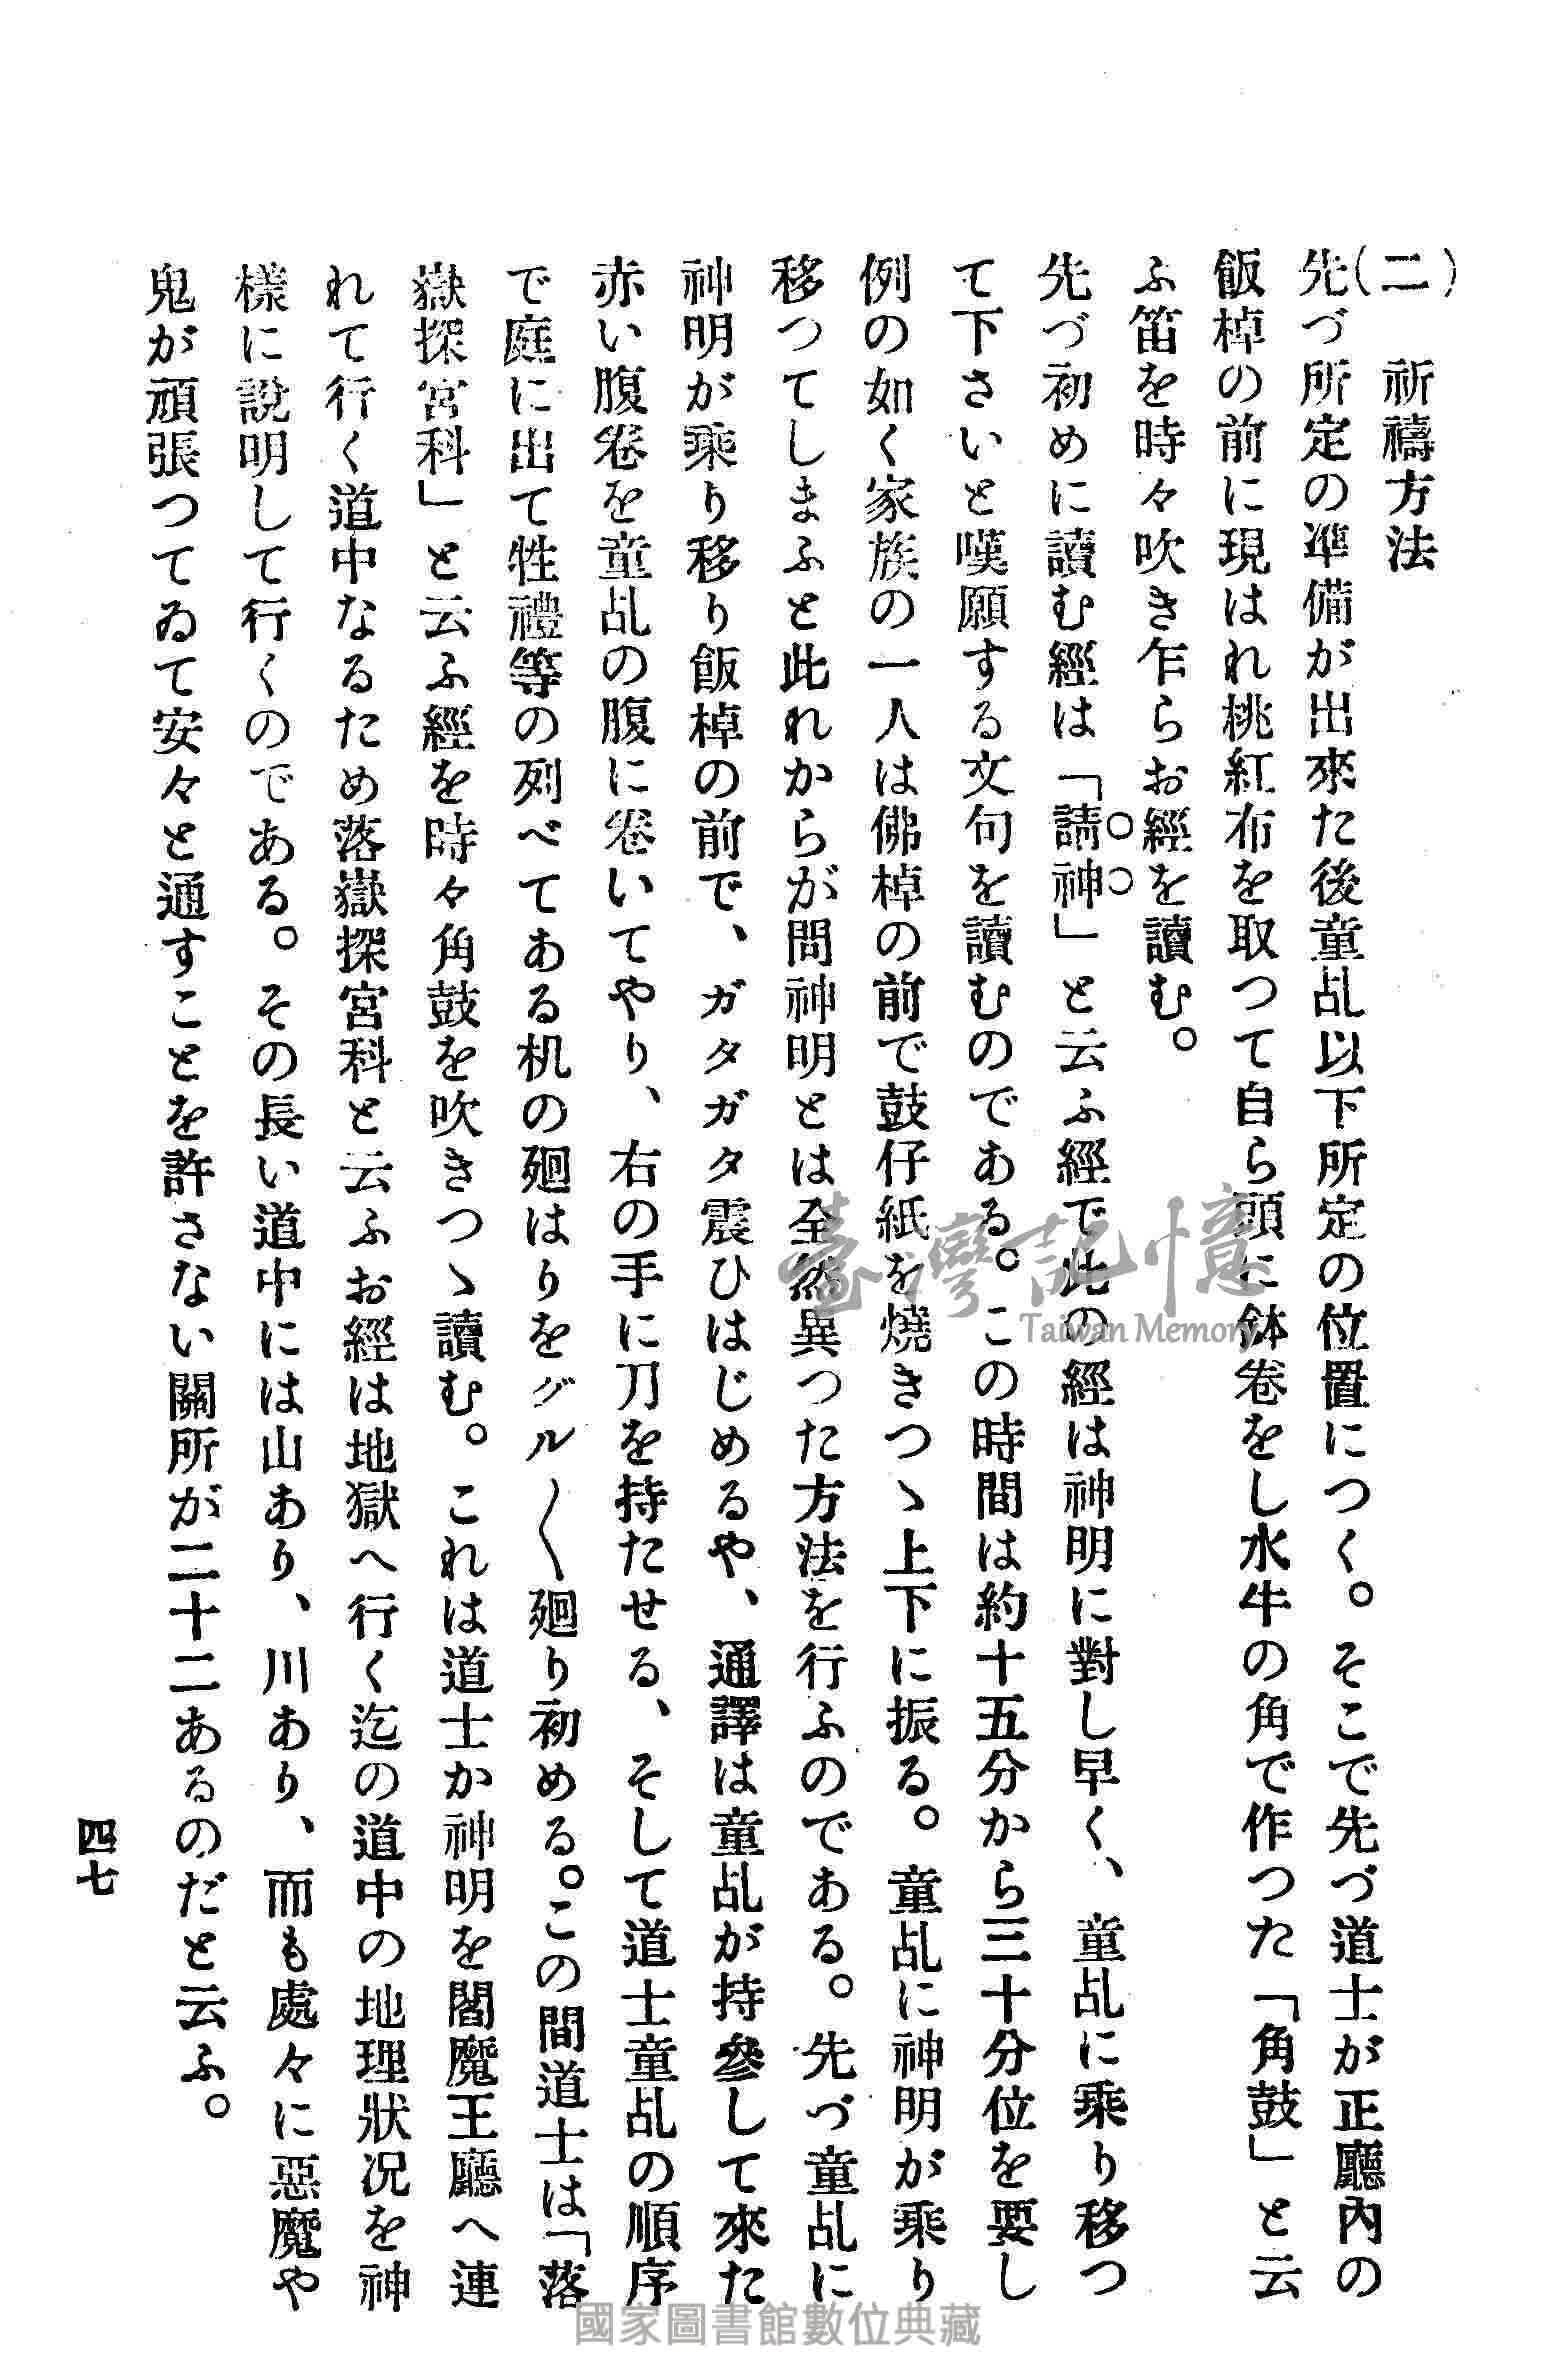 (二) 祈禱方法
先づ所定の準備が出來た後童乩以下所定の位置につく。そこで先づ道士が正廳內の
飯棹の前に現はれ桃紅布を取つて自ら頭に鉢卷をし水牛の角で作つた「角鼓」と云
ふ笛を時々吹き乍らお經を讀む。
先づ初めに讀む經は「請神」と云ふ經で此の經は神明に對し早く、童乩に乘り移つ
て下さいと嘆願する文句を讀むのである。この時間は約十五分から三十分位を要し
例の如く家族の一人は佛棹の前で鼓仔紙を燒きつゝ上下に振る。童乩に神明が乘り
移つてしまふと此れからが問神明とは全然異つた方法を行ふのである。先づ童乩に
神明が乘り移り飯棹の前で、ガタガタ震ひはじめるや、通譯は童乩が持參して來た
赤い腹卷を童乩の腹に卷いてやり、右の手に刀を持たせる、そして道士童乩の順序
で庭に出て牲禮等の列べてある机の廻はりをグル〱廻り初める。この間道士は「落
嶽探宮科」と云ふ經を時々角鼓を吹きつゝ讀む。これは道士か神明を閻魔王廳へ連
れて行く道中なるため落嶽探宮科と云ふお經は地獄へ行く迄の道中の地理狀況を神
樣に說明して行くのである。その長い道中には山あり、川あり、而も處々に惡魔や
鬼が頑張つてゐて安々と通すことを許さない關所が二十二あるのだと云ふ。
四七
臺灣記憶
Taiwan Memory
國家圖書館數位典藏